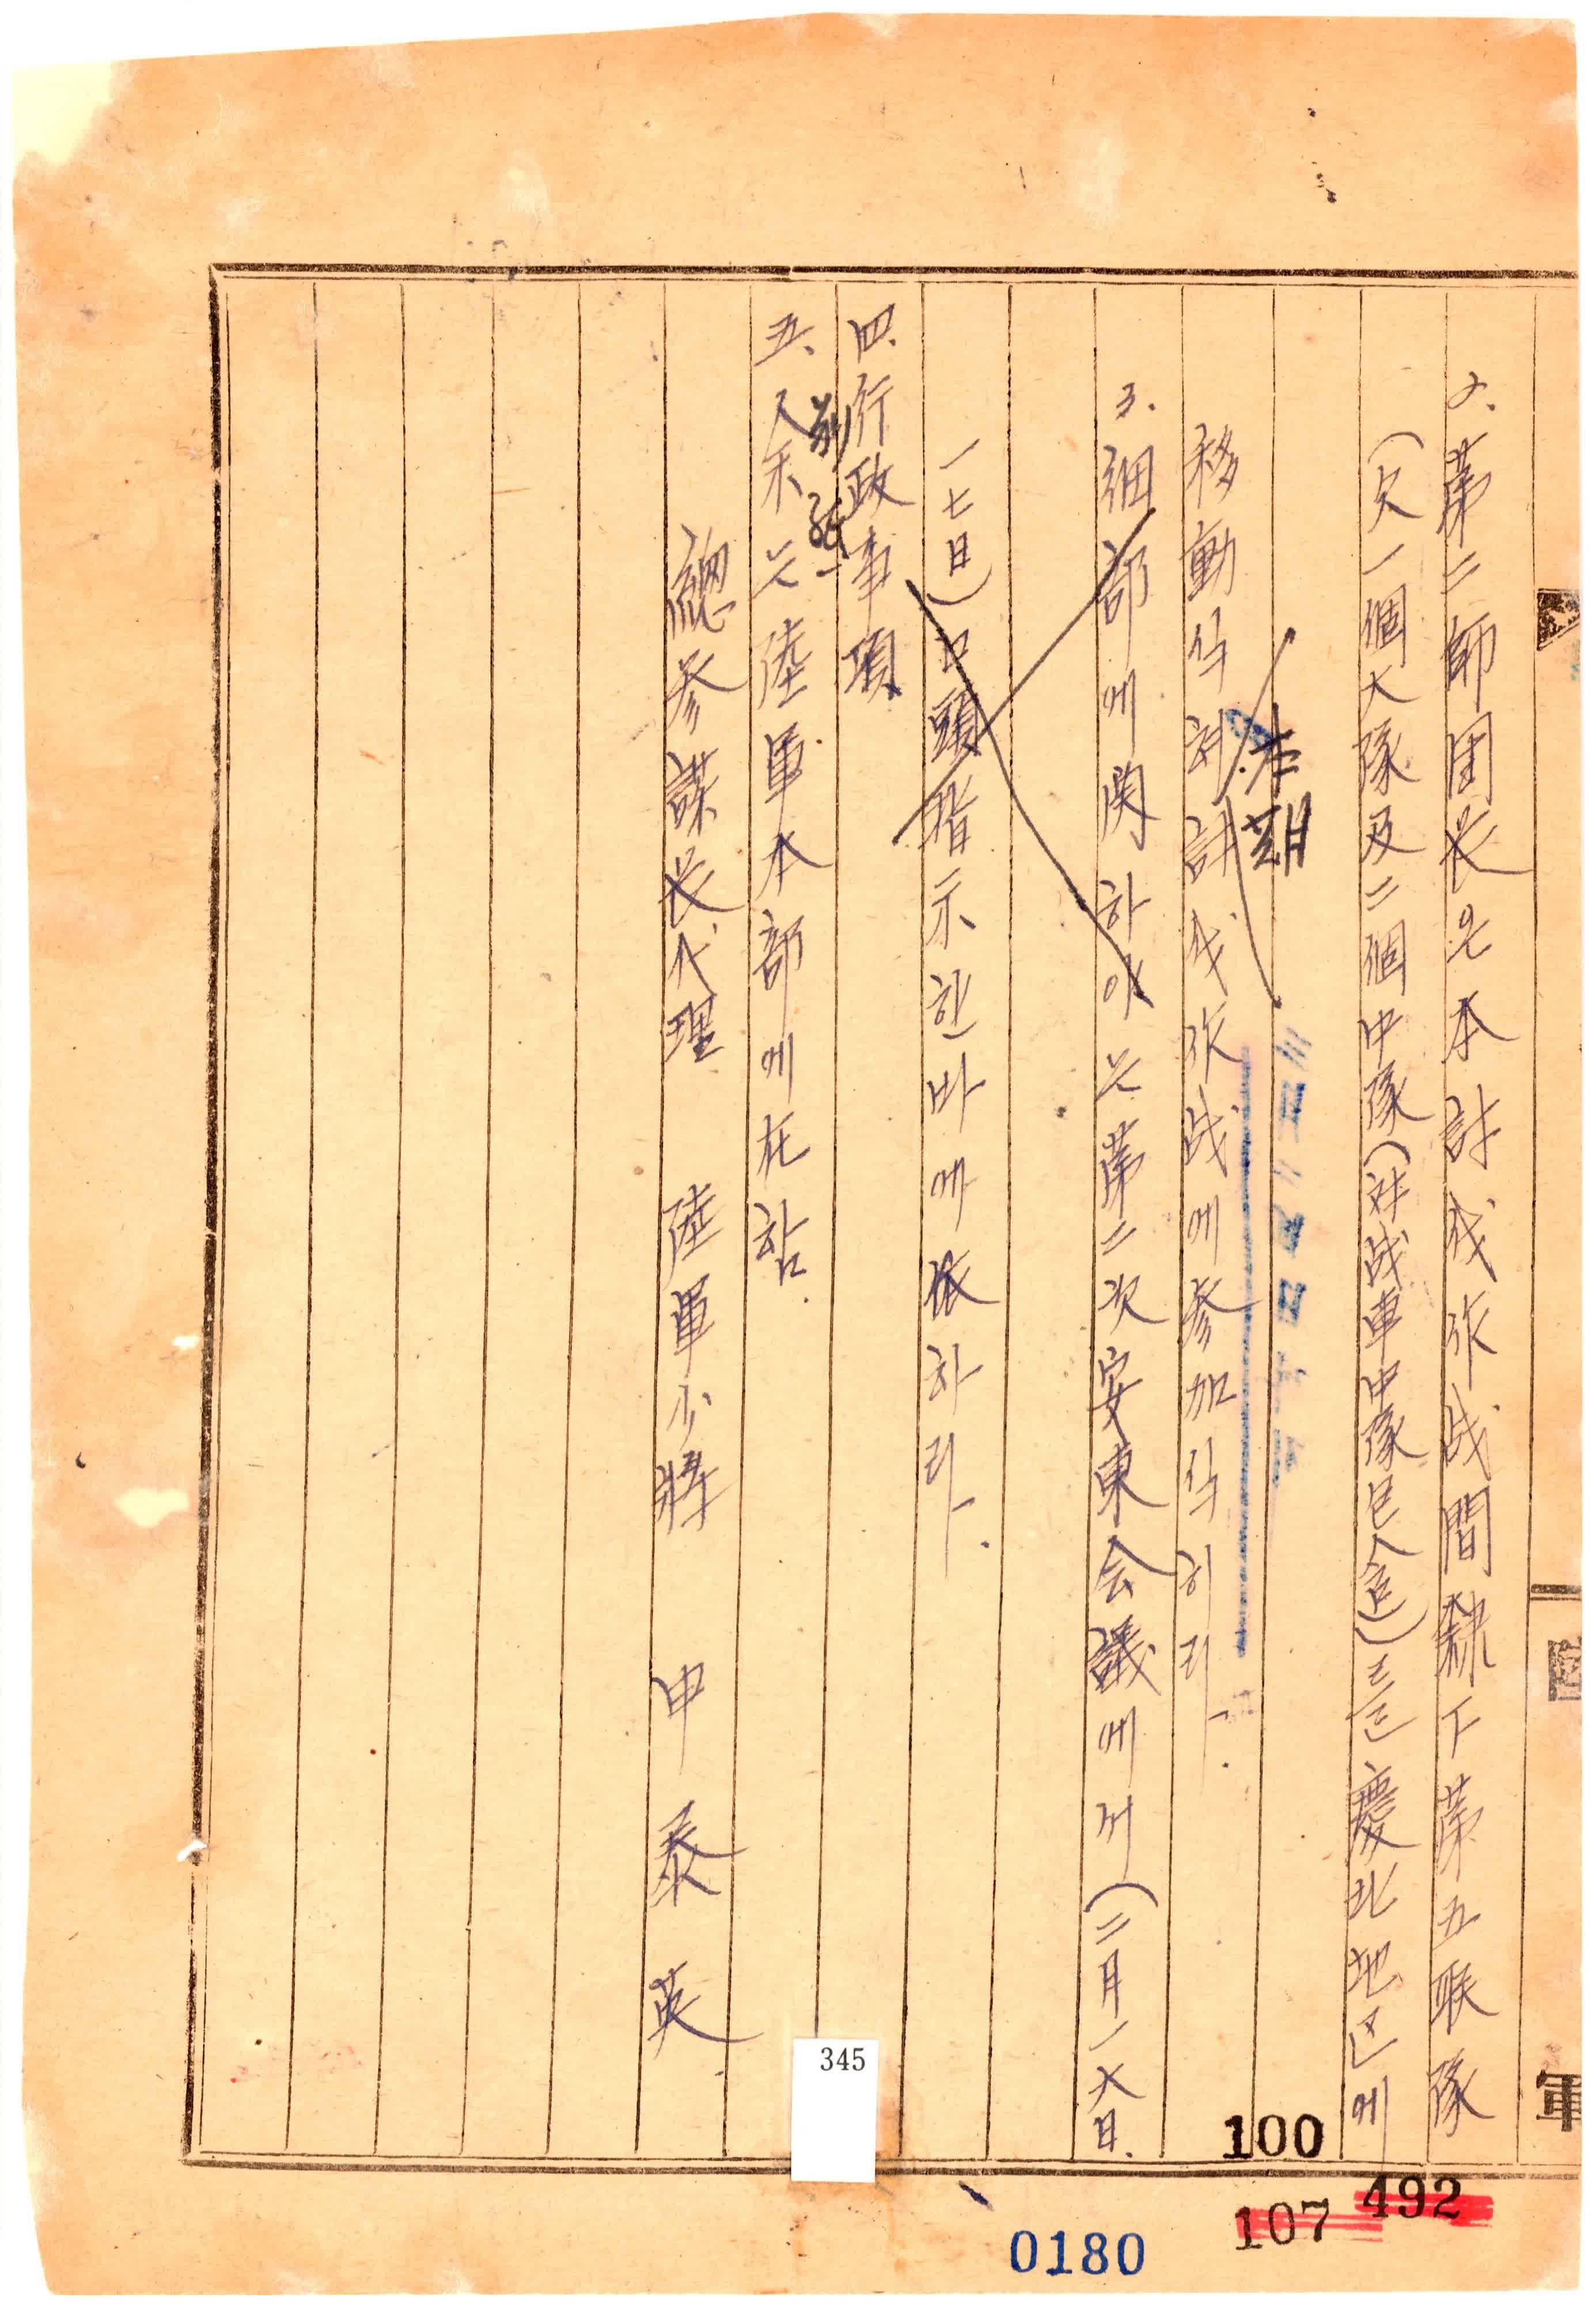 2、第二師団长은本討伐作战間隸下第五联隊
(欠一個大隊及二個中隊(対战車中隊包含))를慶北地区에
移動식혀討伐作战에参加식히라.
本朝
3.細部에関하야는第二次安東会議에서(二月一六日.
一七日)口頭指示한바에依하라.
四.行政事項
別紙
五、余는陸軍本部에在함.
總参謀长代理 陸軍少將 申泰英
軍
345
100
107
492
0180